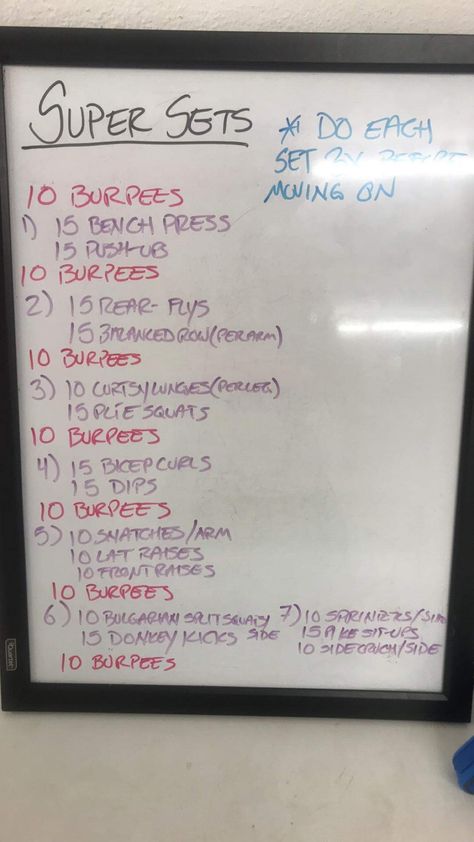 SUPER SETS
* DO EACH
SET 3X BEFORE
MOVING ON
10 BURPEES
1) 15 BENCH PRESS
15 PUSH-UB
10 BURPEES
2) 15 REAR-FLYS
15 BALANCED ROW (PER ARM)
10 BURPEES
3) 10 CURTSY LUNGES (PER LEG)
15 PLIE SQUATS
10 BURPEES
4) 15 BICEP CURLS
15 DIPS
10 BURPEES
5) 10 SNATCHES/ARM
10 LAT RAISES
10 FRONT RAISES
10 BURPEES
6) 10 BULGARIAN SPLIT SQUATS
15 DONKEY KICKS SIDE
10 BURPEES
7) 10 SPRINTERS/SIDE
15 PIKE SIT-UPS
10 SIDE CRUNCH/SIDE
Quartet